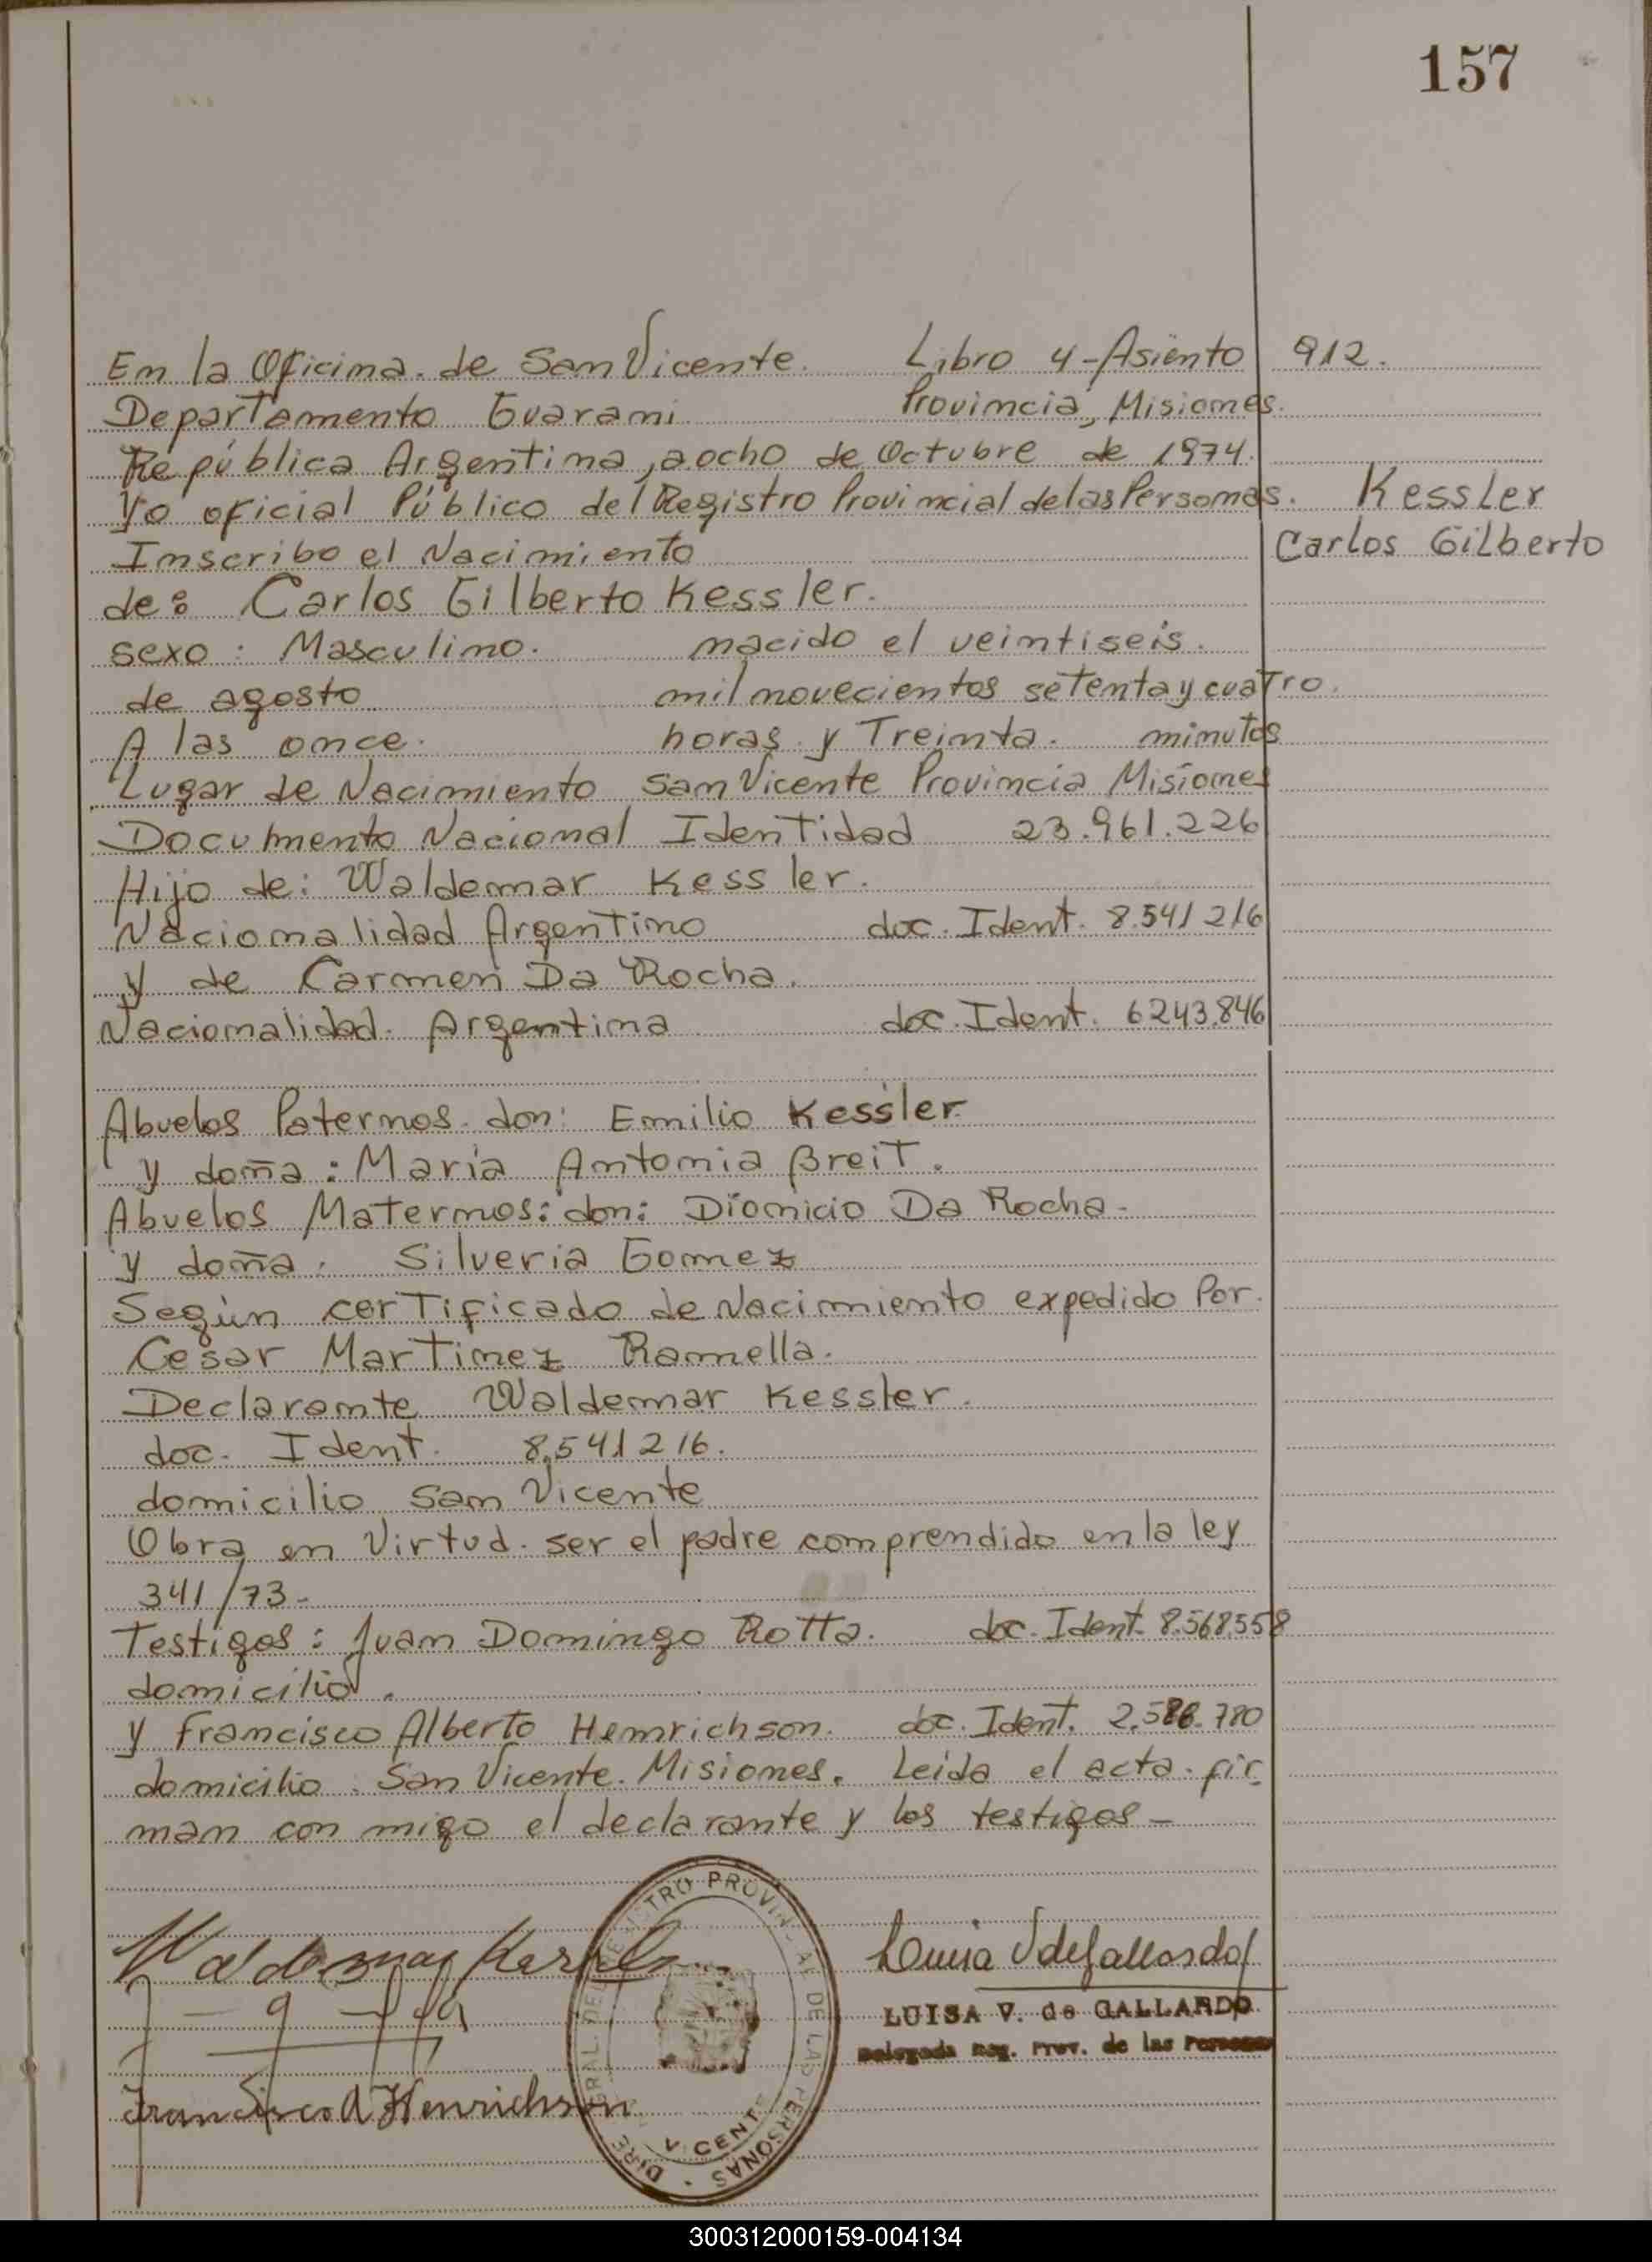 157
En la Oficina. de San Vicente. Libro 4-Asiento 912.
Departamento Guarani Provincia, Misiones.
República Argentina, a ocho de Octubre de 1974.
Yo oficial Público del Registro Provincial de las Personas. Kessler
Inscribo el Nacimiento Carlos Gilberto
de: Carlos Gilberto Kessler.
sexo: Masculino. nacido el veintiseis.
de agosto mil novecientos setenta y cuatro.
A las once. horas y Treinta. minutos
Lugar de Nacimiento San Vicente Provincia Misiones
Documento Nacional Identidad 23.961.226
Hijo de: Waldemar Kessler.
Nacionalidad Argentino doc. Ident. 8.541216
y de Carmen Da Rocha.
Nacionalidad. Argentina doc. Ident. 6243.846
Abuelos Paternos don: Emilio Kessler
y doña: María Antonia Breit.
Abuelos Maternos: don: Dionicio Da Rocha-
y doña: Silveria Gomez
Según certificado de Nacimiento expedido Por.
Cesar Martinez Ramella.
Declarante Waldemar Kessler.
doc. Ident. 8.541216.
domicilio San Vicente
Obra en Virtud. ser el padre comprendido en la ley
341/73-
Testigos: Juan Domingo Rotta. doc. Ident. 8.568.558
domicilio.
y Francisco Alberto Henrichson. doc. Ident. 2.586.780
domicilio. San Vicente. Misiones. Leida el acta. fir
man con migo el declarante y los testigos-
Waldemar Kessler
Luisa V de Gallardo
LUISA V. de GALLARDO
Delegada Reg. Prov. de las Personas
Francisco A Henrichson
300312000159-004134